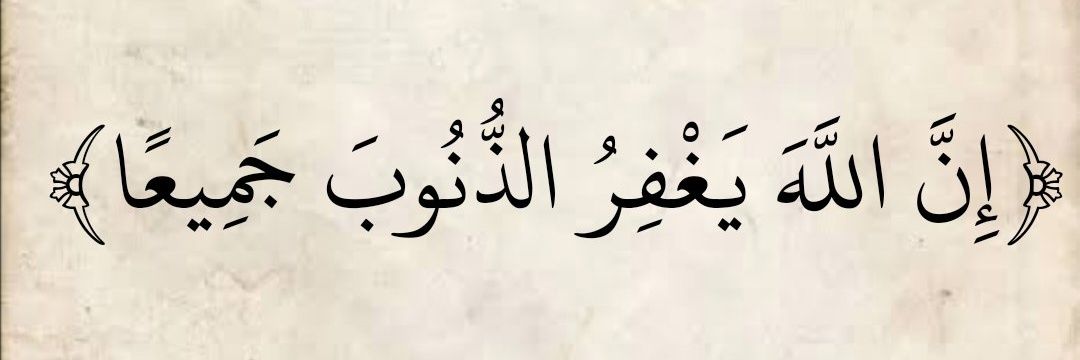 ﴿إِنَّ اللَّهَ يَغْفِرُ الذُّنُوبَ جَمِيعًا﴾